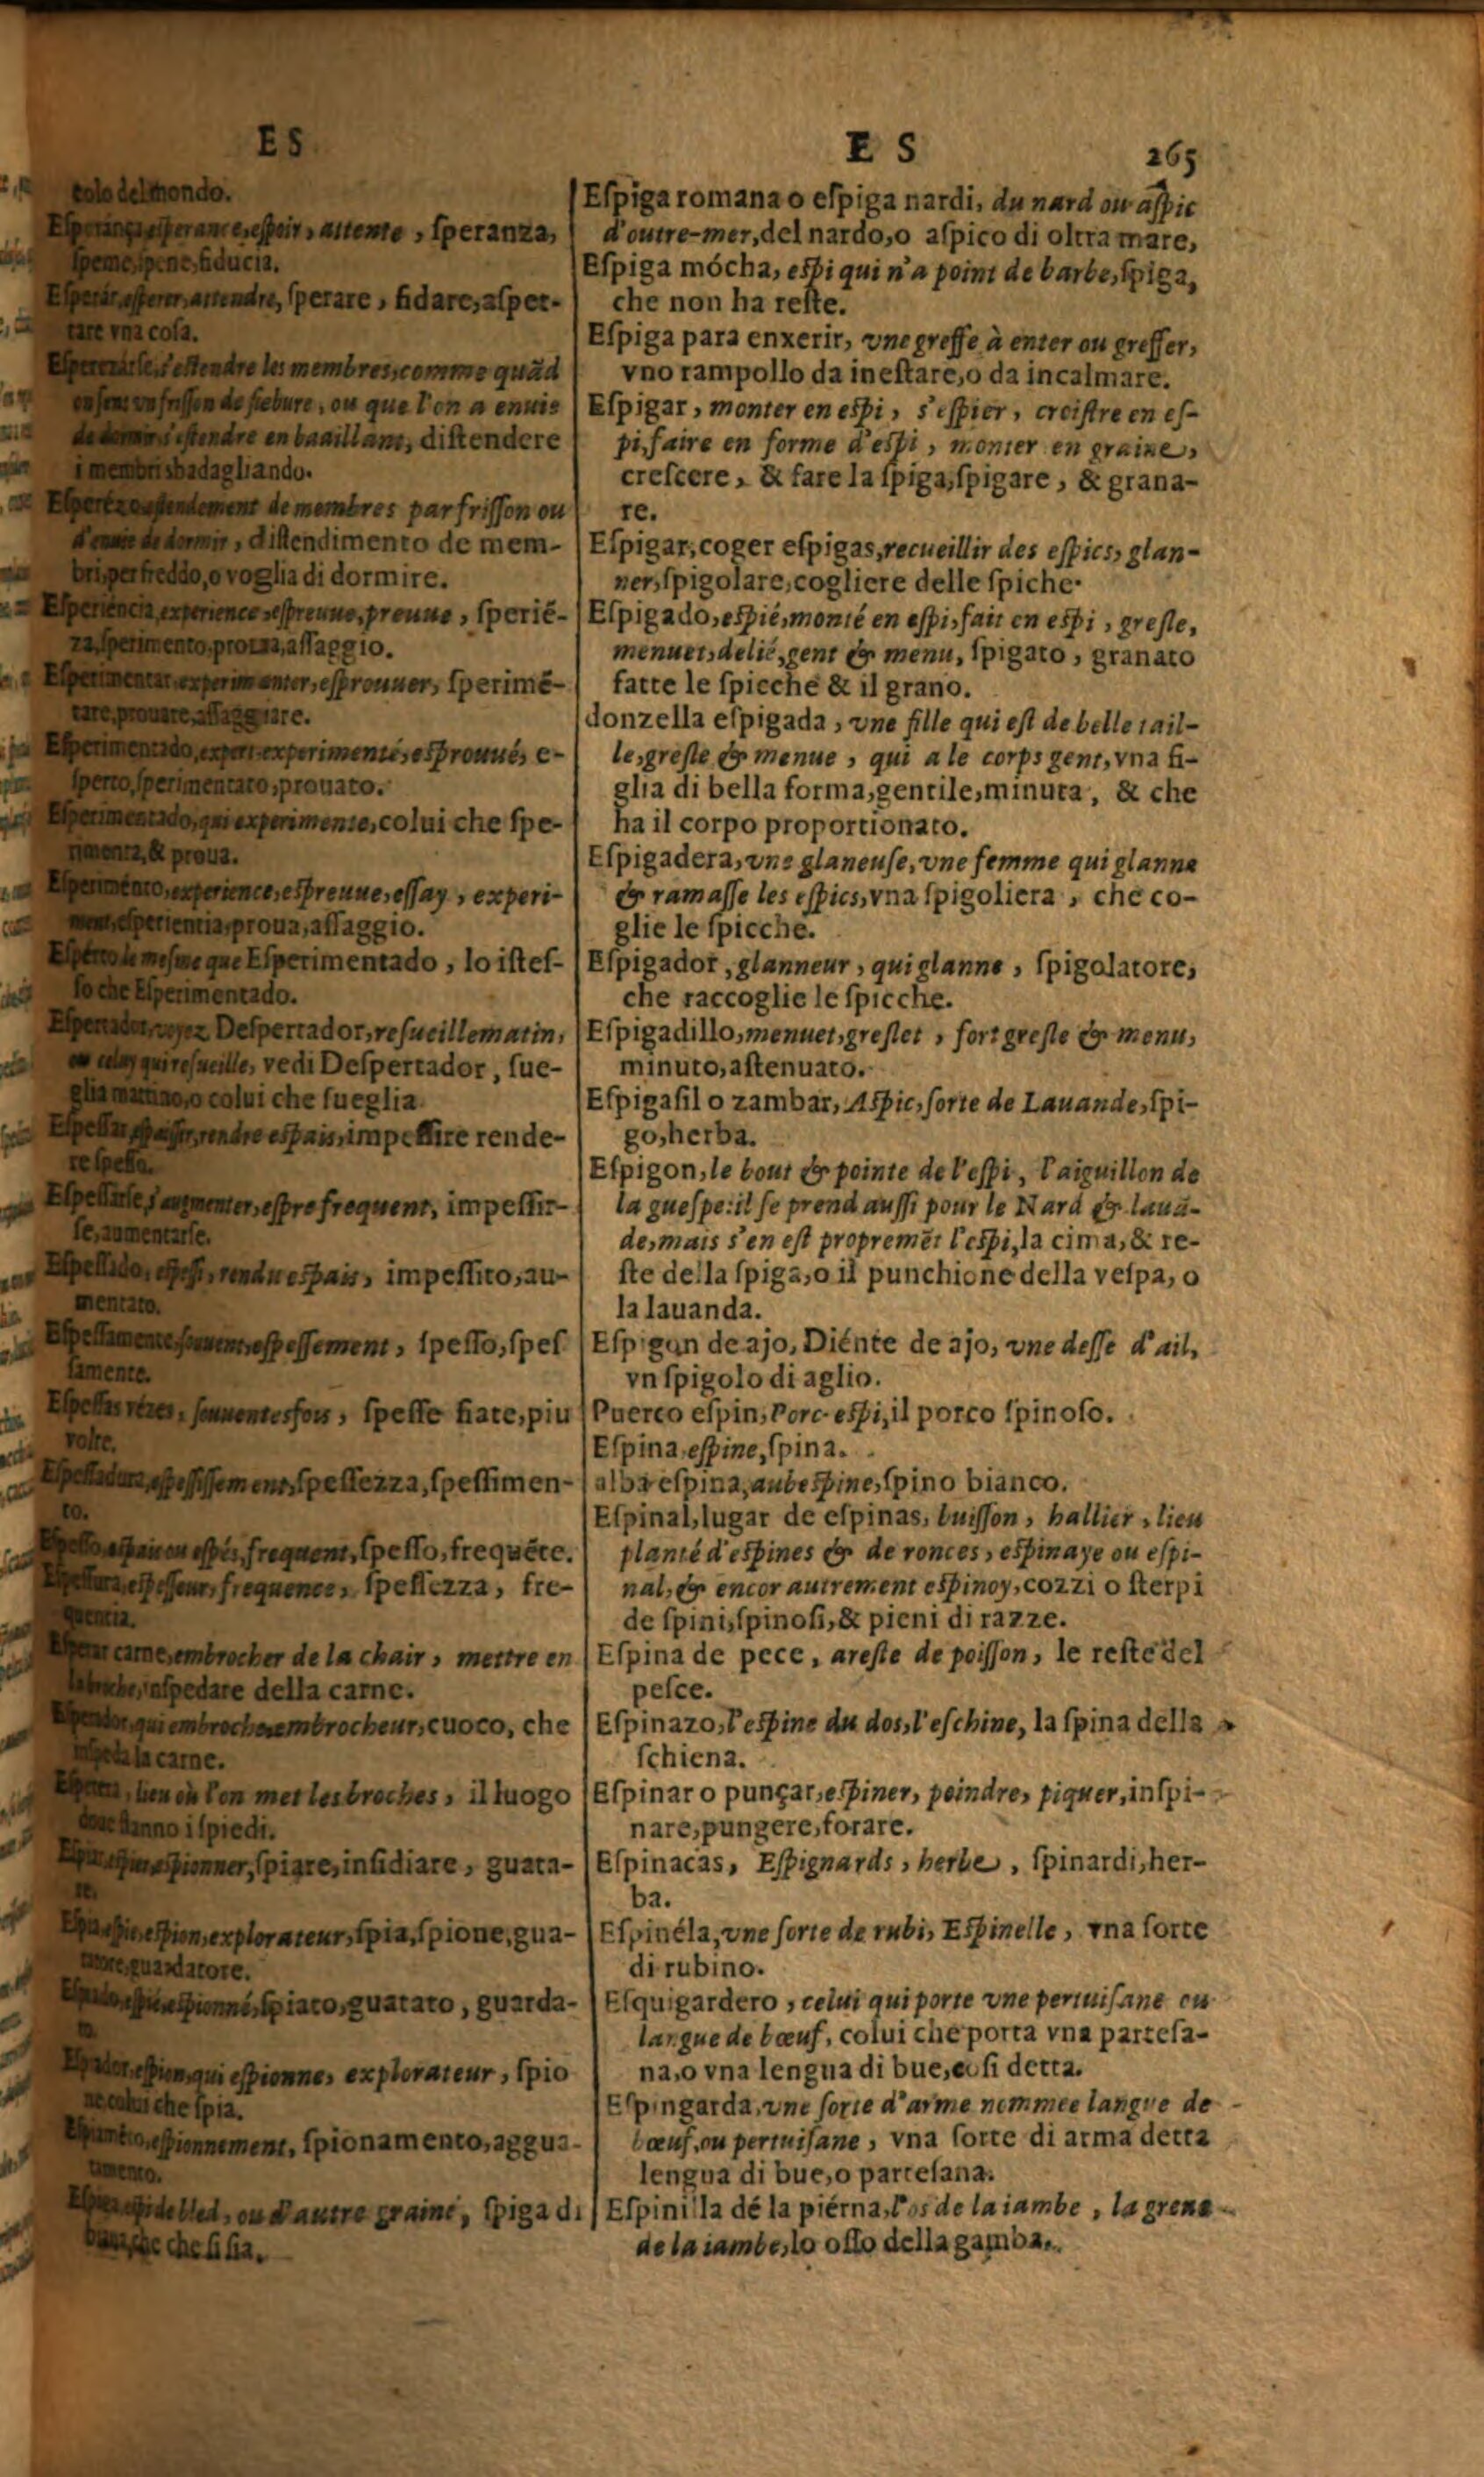 ES
tolo del mondo.
Eſperança, eſperance, eſpoir, attente, ſperanza,
ſpeme, ſpene, fiducia.
Eſperár, eſperer, attendre, ſperare, fidare, aſpet-
tare vna coſa.
Eſperezárſe, s'eſtendre les membres, comme quãd
on ſent vn friſſon de fiebure, ou que l'on a enuie
de dormir, s'eſtendre en baaillant, diſtendere
i membri sbadagliando.
Eſperézo, eſtendement de membres par friſſon ou
d'enuie de dormir, diſtendimento de mem-
bri, per freddo, o voglia di dormire.
Eſperiéncia, experience, eſpreuue, preuue, ſperiẽ-
za, ſperimento, proua, aſſaggio.
Eſperimentar, experimenter, eſprouuer, ſperimẽ-
tare, prouare, aſſaggiare.
Eſperimentado, expert, experimenté, eſprouué, e-
ſperto, ſperimentato, prouato.
Eſperimentado, qui experimente, colui che ſpe-
rimenta, & proua.
Eſperiménto, experience, eſpreuue, eſſay, experi-
ment, eſperientia, proua, aſſaggio.
Eſpérto le meſme que Eſperimentado, lo iſteſ-
ſo che Eſperimentado.
Eſpertador, voyez Deſpertador, reſueillematin,
ou celuy qui reſueille, vedi Deſpertador, ſue-
glia mattino, o colui che ſueglia.
Eſpeſſar, eſpaiſſir, rendre eſpais, impeſſire rende-
re ſpeſſo.
Eſpeſſarſe, s'augmenter, eſtre frequent, impeſſir-
ſe, aumentarſe.
Eſpeſſado, eſpeſſi, rendu eſpais, impeſſito, au-
mentato.
Eſpeſſamente, ſouuent, eſpeſſement, ſpeſſo, ſpeſ
ſamente.
Eſpeſſas vézes, ſouuentesfois, ſpeſſe fiate, piu
volte.
Eſpeſſadura, eſpeſſiſſement, ſpeſſezza, ſpeſſimen-
to.
Eſpeſſo, eſpais ou eſpés, frequent, ſpeſſo, frequẽte.
Eſpeſſura, eſpeſſeur, frequence, ſpeſſezza, fre-
quentia.
carne, embrocher de la chair, mettre en
la broche, inſpedare della carne.
qui embroche, embrocheur, cuoco, che
inſpeda la carne.
lieu où l'on met les broches, il luogo
doue ſtanno i ſpiedi.
Eſpiar, eſpier, eſpionner, ſpiare, inſidiare, guata-
re.
Eſpia, eſpie, eſpion, explorateur, ſpia, ſpione, gua-
tatore, guardatore.
Eſpiado, eſpié, eſpionné, ſpiato, guatato, guarda-
to.
Eſpiador, eſpion, qui eſpionne, explorateur, ſpio
ne, colui che ſpia.
eſpionnement, ſpionamento, aggua-
tamento.
Eſpiga, eſpi de bled, ou d'autre graine, ſpiga di
che che ſi ſia.
E S 265
Eſpiga romana o eſpiga nardi, du nard ou aſpic
d'outre-mer, del nardo, o aſpico di oltra mare,
Eſpiga mócha, eſpi qui n'a point de barbe, ſpiga,
che non ha reſte.
Eſpiga para enxerir, vne greffe à enter ou greffer,
vno rampollo da ineſtare, o da incalmare.
Eſpigar, monter en eſpi, s'eſpier, croiſtre en eſ-
pi, faire en forme d'eſpi, monter en graine,
creſcere, & fare la ſpiga, ſpigare, & grana-
re.
Eſpigar, coger eſpigas, recueillir des eſpics, glan-
ner, ſpigolare, cogliere delle ſpiche.
Eſpigado, eſpié, monté en eſpi, fait en eſpi, greſle,
menuet, delié, gent & menu, ſpigato, granato
fatte le ſpicche & il grano.
donzella eſpigada, vne fille qui eſt de belle tail-
le, greſle & menue, qui a le corps gent, vna fi-
glia di bella forma, gentile, minuta, & che
ha il corpo proportionato.
Eſpigadera, vne glaneuſe, vne femme qui glanne
& ramaſſe les eſpics, vna ſpigoliera, che co-
glie le ſpicche.
Eſpigador, glanneur, qui glanne, ſpigolatore,
che raccoglie le ſpicche.
Eſpigadillo, menuet, greſlet, fort greſle & menu,
minuto, aſtenuato.
Eſpigaſil o zambar, Aſpic, ſorte de Lauande, ſpi-
go, herba.
Eſpigon, le bout & pointe de l'eſpi, l'aiguillon de
la gueſpe: il ſe prend auſſi pour le Nard & lauã-
de, mais s'en eſt propremẽt l'eſpi, la cima, & re-
ſte della ſpiga, o il punchione della veſpa, o
la lauanda.
Eſpigon de ajo, Diénte de ajo, vne deſſe d'ail,
vn ſpigolo di aglio.
Puerco eſpin, Porc-eſpi, il porco ſpinoſo.
Eſpina, eſpine, ſpina.
alba eſpina, aubeſpine, ſpino bianco.
Eſpinal, lugar de eſpinas, buiſſon, hallier, lieu
planté d'eſpines & de ronces, eſpinaye ou eſpi-
nal, & encor autrement eſpinoy, cozzi o ſterpi
de ſpini, ſpinoſi, & pieni di razze.
Eſpina de pece, areſte de poiſſon, le reſte del
peſce.
Eſpinazo, l'eſpine du dos, l'eſchine, la ſpina della
ſchiena.
Eſpinar o punçar, eſpiner, poindre, piquer, inſpi-
nare, pungere, forare.
Eſpinacas, Eſpignards, herbe, ſpinardi, her-
ba.
Eſpinéla, vne ſorte de rubi, Eſpinelle, vna ſorte
di rubino.
Eſquigardero, celui qui porte vne pertuiſane ou
langue de bœuf, colui che porta vna parteſa-
na, o vna lengua di bue, coſi detta.
Eſpingarda, vne ſorte d'arme nommee langue de
bœuf, ou pertuiſane, vna ſorte di arma detta
lengua di bue, o parteſana.
Eſpinilla dé la piérna, l'os de la iambe, la greue
de la iambe, lo oſſo della gamba.